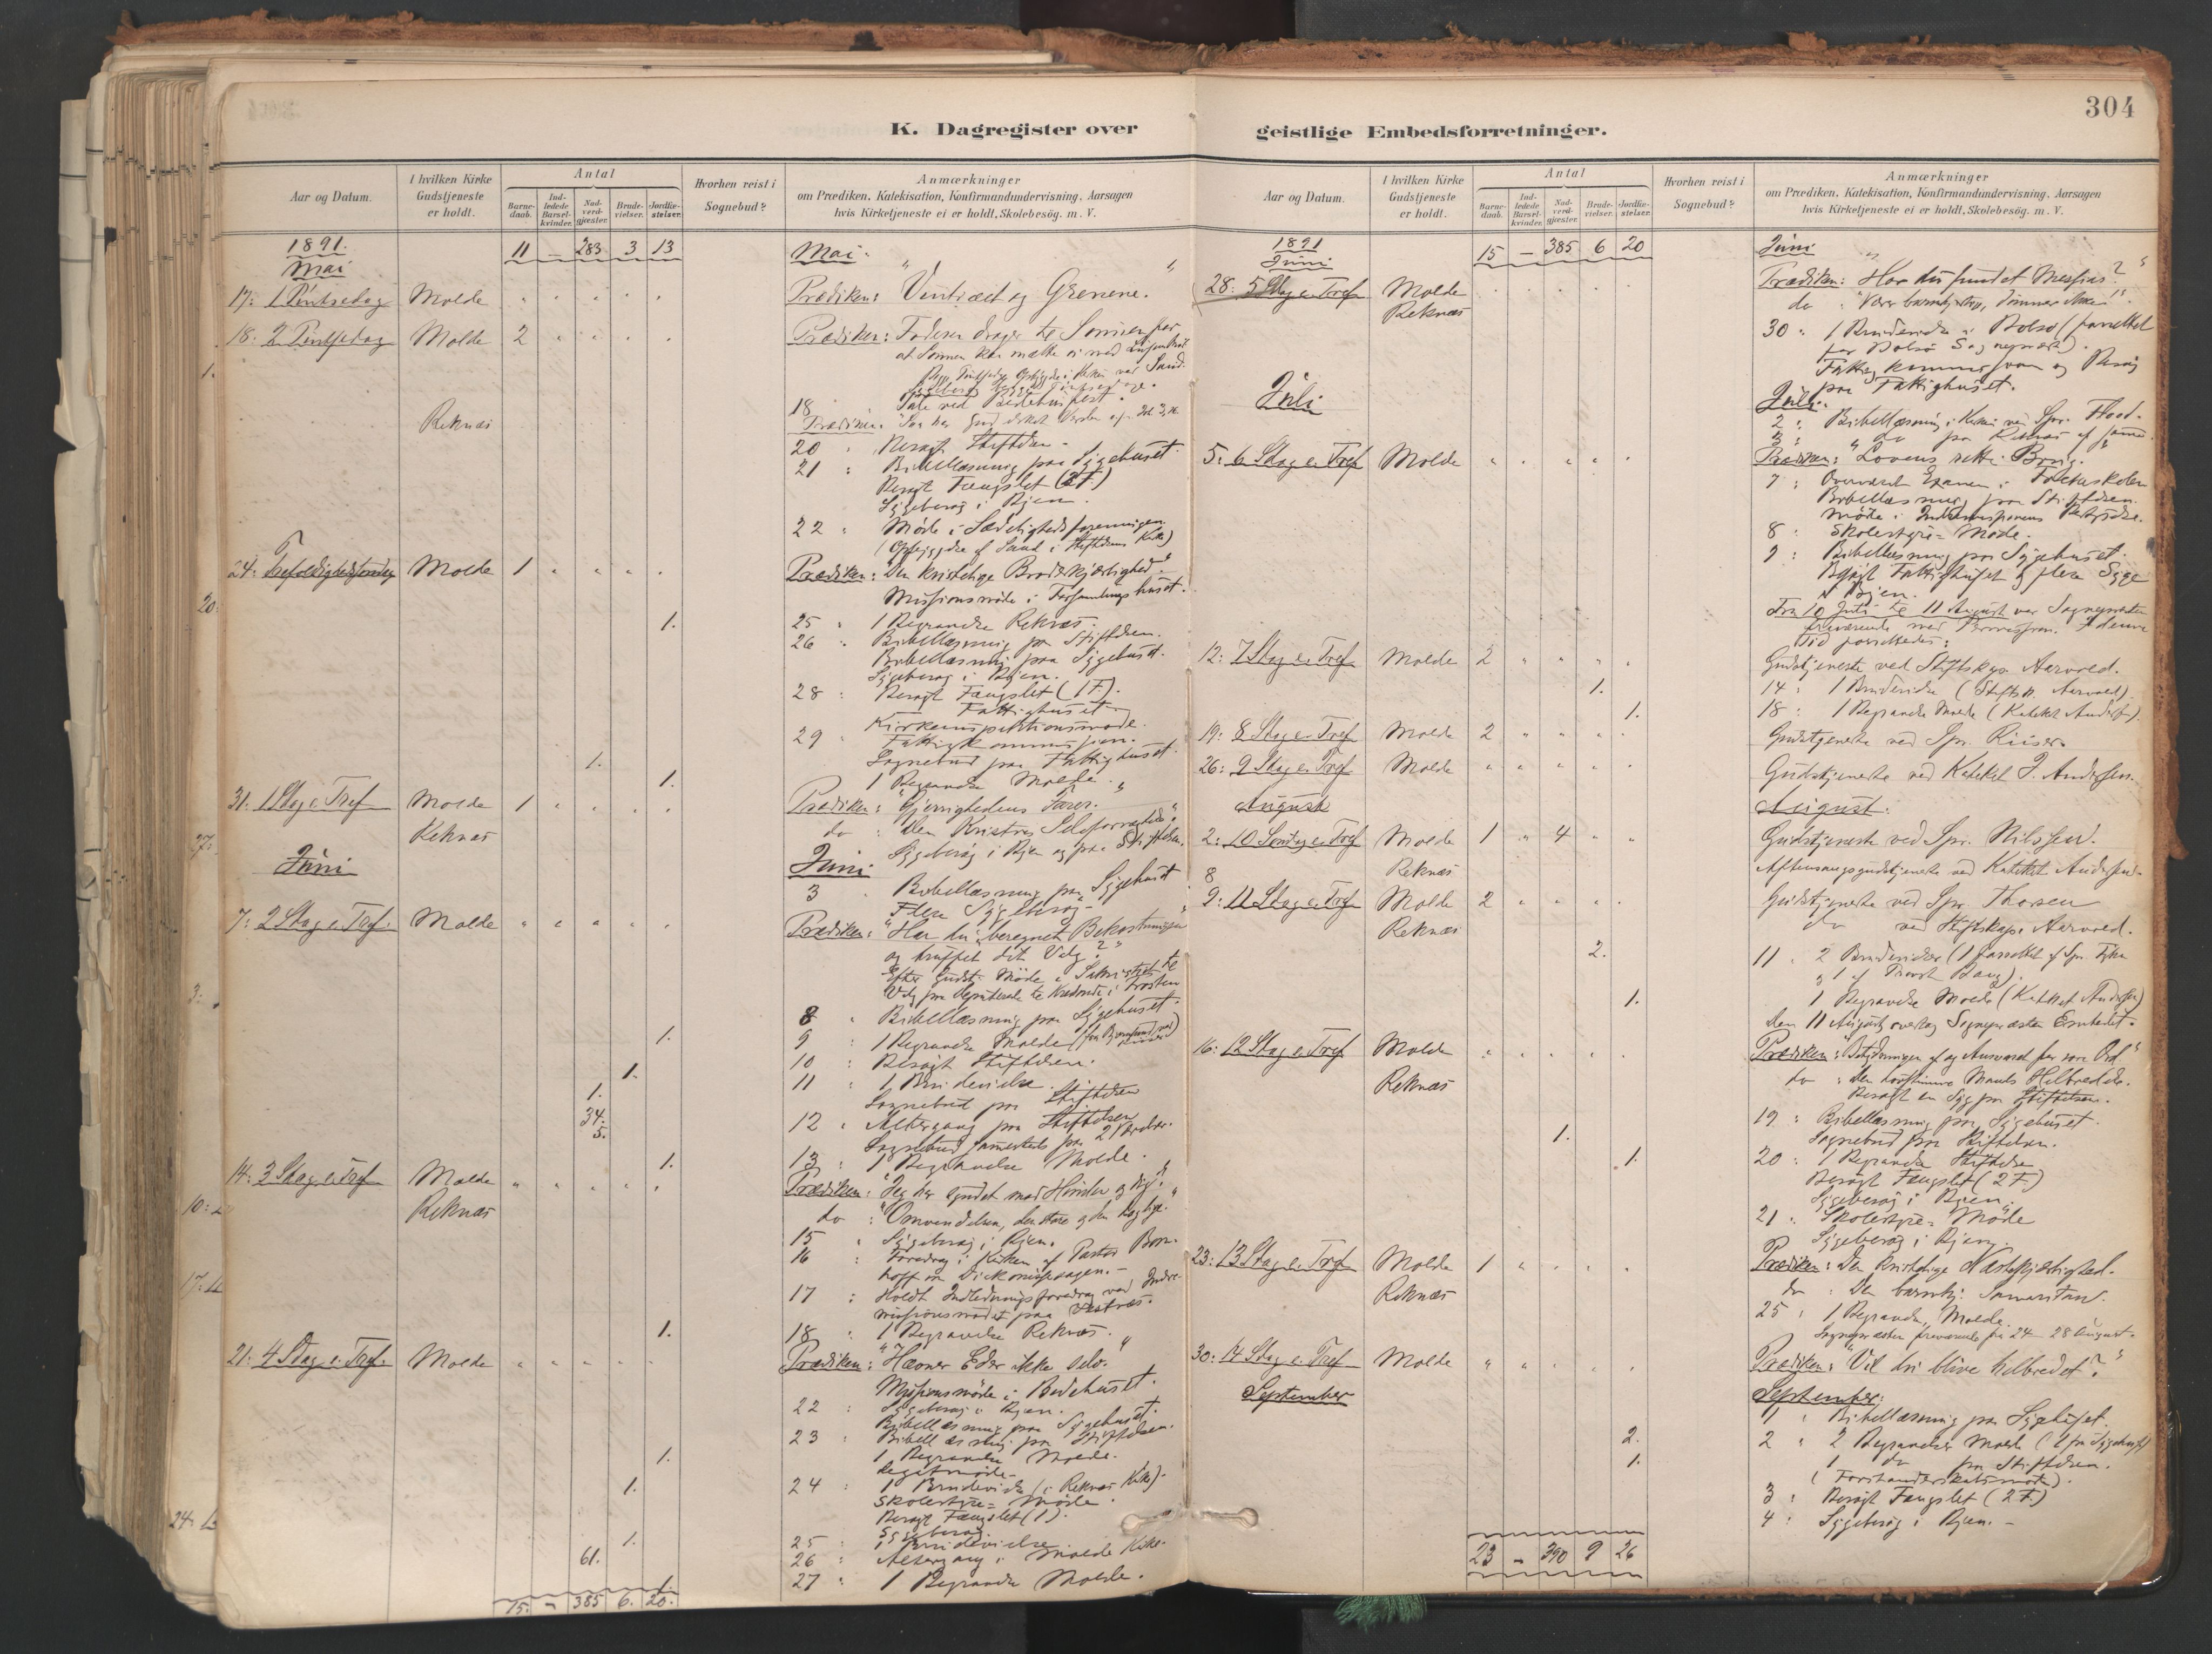 304
K. Dagregister over
geistlige Embedsforretninger.
Aar og Datum.
I hvilken Kirke Gudstjeneste er holdt.
Antal
Barne-daab.
Ind-ledede Barsel-kvinder.
Nad-verd-gjæster.
Brude-vielser.
Jordfæ-stelser.
Hvorhen reist i Sognebud?
Anmærkninger
om Prædiken, Katekisation, Konfirmandundervisning, Aarsagen
hvis Kirketjeneste ei er holdt, Skolebesøg. m. V.
1891. 11 – 283 3 13 Mai.
Mai
17: 1 Pintsedag Molde Prædiken: "Vintræet og Grenene."
18: 2 Pintsedag Molde 2 Prædiken: Faderen drager til Sønnen for
at Sønnen kan mætte os med
18 Tale ved
Reknæs Prædiken: "Saa har Gud elsket Verden
20 Besøgt Stiftelsen
21 : Bibellæsning paa Sygehuset.
Besøgt Fængslet (2 F.)
Sygebesøg i Byen.
22 " Møde i Sædelighedsforeningen
24: Trefoldighedssøndag Molde 1 Prædiken: "Den kristelige Broderkjærlighed."
Missionsmøde i Forsamlingshuset.
1. 25 " 1 Begravelse Reknæs.
26 " Bibellæsning paa Stiftelsen.
Bibellæsning paa Sygehuset.
Sygebesøg i Byen.
28 : Besøgt Fængslet (1 F.).
Fattighuset
29 " Kirkeinspektionsmøde.
Fattigkommission.
1. Sognebud paa Fattighuset.
1. 1 Begravelse Molde.
31. 1 Sdag e. Tref Molde 1 Prædiken: "Gjerrighedens Farer."
Reknæs do : "Den Kristnes Selvfornegtelse"
Sygebesøg i Byen og paa Stiftelsen.
Juni Juni
3 " Bibellæsning paa Sygehuset
Flere Sygebesøg
7: 2 Sdag e. Tref. Molde Prædiken: "Har du beregnet Bekostningen
og truffet dit Valg?"
Efter Gudst. Møde i Sakristiet til
8 " Bibellæsning paa Sygehuset.
1. 9 : 1 Begravelse Molde
10 : Besøgt Stiftelsen.
1. 11 : 1 Brudevielse.
1. Sognebud paa Stiftelsen
34. 12 " Altergang paa Stiftelsen
5. Sognebud sammesteds paa 2 Værelser.
1. 13 : 1 Begravelse Molde.
14: 3 Sdag e. Tref Molde Prædiken: "Jeg har syndet mod Himlen og dig."
Reknæs do : "Omvendelsen, den store og den daglige."
15 " Sygebesøg i Byen.
16 : Foredrag i Kirken af Pastor Born-
hoff om Diakonissesagen.
17 : Holdt Indledningsforedrag ved Indre-
missionsmødet paa
1. 18 : 1 Begravelse Reknæs.
21: 4 Sdag e. Tref. Molde Prædiken: "Hævner Eder ikke selv."
Missionsmøde i Bedehuset.
22 : Sygebesøg i Byen.
Bibellæsning paa Sygehuset.
23 : Bibellæsning paa Stiftelsen.
1. 1 Begravelse Molde.
Legatmøde
1. 24 : 1 Brudevielse (i Reknæs Kirke).
Skolestyre-Møde.
Besøgt Fængslet (1).
Sygebesøg.
1. 25 : 1 Brudevielse
61. 26 : Altergang i Molde Kirke.
1. 27 : 1 Begravelse Molde.
15. – 385 6. 20.
Aar og Datum.
I hvilken Kirke Gudstjeneste er holdt.
Antal
Barne-daab.
Ind-ledede Barsel-kvinder.
Nad-verd-gjæster.
Brude-vielser.
Jordfæ-stelser.
Hvorhen reist i Sognebud?
Anmærkninger
om Prædiken, Katekisation, Konfirmandundervisning, Aarsagen
hvis Kirketjeneste ei er holdt, Skolebesøg. m. V.
1891 15 – 385 6 20 Juni
Juni
28: 5 Sdag e. Tref Molde Prædiken: "Har du fundet Messias?"
Reknæs do "Vær barmhjertig, dømmer ikke!"
30 " 1 Brudevielse i Bolsø (forrettet
for Bolsø Sogneprest).
Fattigkommission og Besøg
paa Fattighuset.
Juli Juli
2 " Bibellæsning i Kirken ved Spr. Flood.
3 : " do paa Reknæs af samme.
5: 6 Sdag e. Tref Molde Prædiken: "Lovens rette Brug."
7 : Overværet Examen i Folkeskolen
Bibellæsning paa Stiftelsen.
Møde i Indremissionens Bestyrelse.
8 " Skolestyre-Møde.
9 : Bibellæsning paa Sygehuset.
Besøgt Fattighuset og flere Syge
i Byen.
Fra 10 Juli til 11 August var Sognepresten
fraværende med Permission. I denne
Tid forrettedes:
12: 7 Sdag e. Tref. Molde 2 Gudstjeneste ved Stiftskap. Aarvold.
1. 14 : 1 Brudevielse (Stiftsk. Aarvold).
1. 18 : 1 Begravelse Molde (Kateket Andersen).
19: 8 Sdag e. Tref Molde 2 Gudstjeneste ved Spr. Riiser.
26: 9 Sdag e. Tref Molde Gudstjeneste ved Kateket J. Andersen.
August August.
2: 10 Søndag e. Tref Molde 1 " 4 Gudstjeneste ved Spr. Nilssen.
8 Reknæs Aftensangsgudstjeneste ved Kateket Andersen.
9: 11 Sdag e. Tref Molde 2 Gudstjeneste ved Spr. Thorsen
Reknæs do ved Stiftskap. Aarvold.
2. 11 " 2 Brudevielser (1 forrettet af Spr.
og 1 af Provst Bang).
1. 1 Begravelse Molde (Kateket Andersen)
Den 11 August overtog Sognepresten Embedet.
16: 12 Sdag e. Tref Molde Prædiken: "Betydningen af og Ansvaret for vore Ord"
Reknæs do : Den døvstumme Mands Helbredelse.
Besøgt en Syg paa Stiftelsen.
19 : Bibellæsning paa Sygehuset.
1. Sognebud paa Stiftelsen.
1. 20 : 1 Begravelse Stiftelsen
Besøgt Fængslet (2 F.)
Sygebesøg i Byen.
21 : Skolestyre-Møde
Sygebesøg i Byen.
23: 13 Sdag e. Tref Molde 1 Prædiken: Den kristelige Næstekjærlighed.
Reknæs do : Den barmhj. Samaritan.
25 : 1 Begravelse Molde.
Sognepresten fraværende fra 24–28 August.
30: 14 Sdag e. Tref Molde Prædiken: "Vil du blive helbredet?"
September September:
1 " Bibellæsning paa Sygehuset.
2. 2 " 2 Begravelser Molde (1 fra Sygehuset)
1. 1 do fra Stiftelsen.
(Forstanderskabsmøde).
3 : Besøgt Fængslet (2 F.)
4 : Sygebesøg i Byen.
23 – 390 9 26